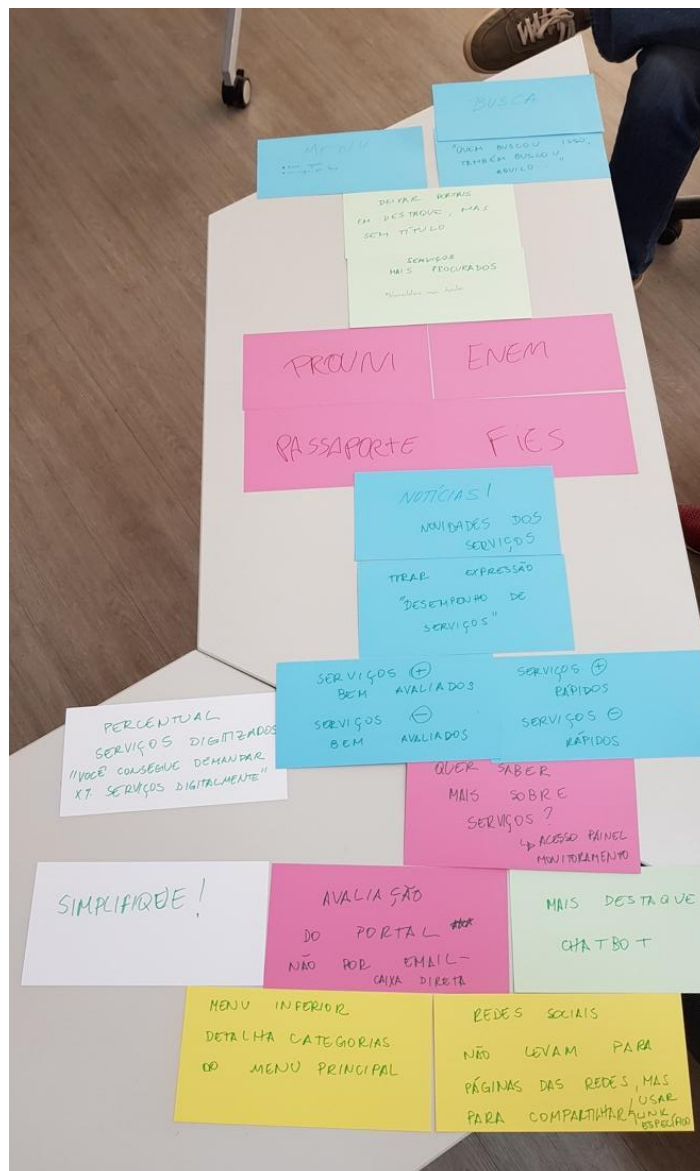 BUSCA
"QUEM BUSCOU ISSO,
TAMBÉM BUSCOU
AQUILO..."
MENU
DEIXAR PORTAIS
EM DESTAQUE, MAS
SEM TÍTULO
SERVIÇOS
MAIS PROCURADOS
PROUNI
ENEM
PASSAPORTE
FIES
NOTÍCIAS!
NOVIDADES DOS
SERVIÇOS
TIRAR EXPRESSÃO
"DESEMPENHO DE
SERVIÇOS"
SERVIÇOS +
BEM AVALIADOS
SERVIÇOS -
BEM AVALIADOS
SERVIÇOS +
RÁPIDOS
SERVIÇOS -
RÁPIDOS
PERCENTUAL
SERVIÇOS DIGITIZADOS
"VOCÊ CONSEGUE DEMANDAR
X% SERVIÇOS DIGITALMENTE"
QUER SABER
MAIS SOBRE
SERVIÇOS?
↳ ACESSO PAINEL
MONITORAMENTO
SIMPLIFIQUE!
AVALIAÇÃO
DO PORTAL ***
NÃO POR EMAIL-
CAIXA DIRETA
MAIS DESTAQUE
CHATBOT
MENU INFERIOR
DETALHA CATEGORIAS
DO MENU PRINCIPAL
REDES SOCIAIS
NÃO LEVAM PARA
PÁGINAS DAS REDES, MAS
PARA COMPARTILHAR/USAR
LINK
ESPECÍFICO